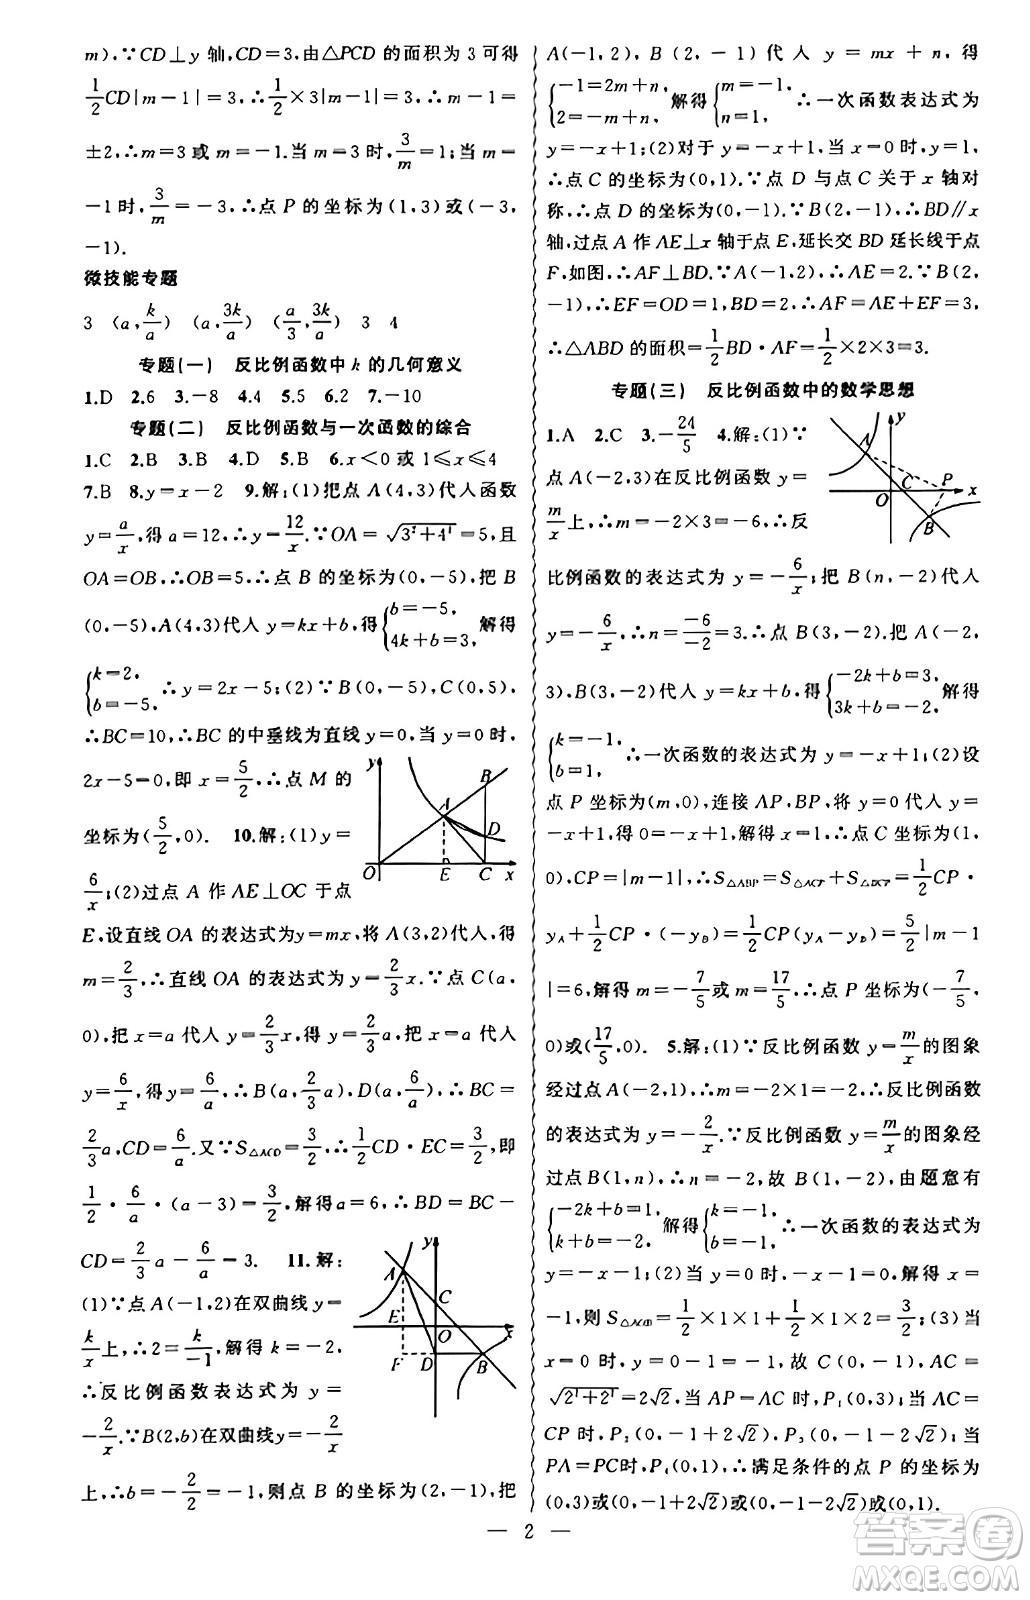 m),∵CD⊥y 轴,CD=3,由△PCD的面积为3可得
1/2CD|m-1|=3,∴1/2×3|m-1|=3,∴m-1=
±2,∴m=3 或 m=-1.当 m=3 时,3/m=1;当 m=
-1时,3/m=-3,∴点 P 的坐标为(1,3)或(-3,
-1).
微技能专题
3 (a,k/a) (a,3k/a) (a/3,3k/a) 3 4
专题(一) 反比例函数中 k 的几何意义
1.D 2.6 3.-8 4.4 5.6 6.2 7.-10
专题(二) 反比例函数与一次函数的综合
1.C 2.B 3.B 4.D 5.B 6.x<0 或 1≤x≤4
7.B 8.y=x-2 9.解:(1)把点 A(4,3)代人函数
y=a/x,得 a=12,∴y=12/x.∵OA=√(3²+4²)=5,且
OA=OB,∴OB=5,∴点 B 的坐标为(0,-5),把 B
(0,-5),A(4,3)代人 y=kx+b,得{b=-5, 4k+b=3,解得
{k=2, b=-5, ∴y=2x-5;(2)∵B(0,-5),C(0,5),
∴BC=10,∴BC 的中垂线为直线 y=0,当 y=0 时,
2x-5=0,即 x=5/2,∴点 M 的
坐标为(5/2,0). 10.解:(1)y=
6/x;(2)过点 A 作 AE⊥OC 于点
E,设直线 OA 的表达式为y=mx,将 A(3,2)代人,得
m=2/3,∴直线 OA 的表达式为 y=2/3x.∵点 C(a,
0),把 x=a 代人 y=2/3x,得 y=2/3a,把 x=a 代人
y=6/x,得 y=6/a,∴B(a,2/3a),D(a,6/a),∴BC=
2/3a,CD=6/a.又∵S△ACD=3/2,∴1/2CD·EC=3/2,即
1/2·6/a·(a-3)=3/2,解得 a=6,∴BD=BC-
CD=2/3a-6/a=3. 11.解:
(1)∵点A(-1,2)在双曲线 y=
k/x上,∴2=k/-1,解得 k=-2,
∴反比例函数表达式为 y=
-2/x.∵B(2,b)在双曲线y=-2/x
上,∴b=-2/2=-1,则点 B 的坐标为(2,-1),把
y
B
A
D
O
E
C
x
y
A
C
E
O
x
F
D
B
A(-1,2),B(2,-1)代人 y=mx+n,得
{-1=2m+n, 2=-m+n,解得{m=-1, n=1, ∴一次函数表达式为
y=-x+1;(2)对于 y=-x+1,当 x=0 时,y=1,
∴点 C 的坐标为(0,1).∵点 D 与点 C 关于 x 轴对
称,∴点 D 的坐标为(0,-1).∵B(2,-1),∴BD∥x
轴,过点 A 作 AE⊥x 轴于点 E,延长交 BD 延长线于点
F,如图,∴AF⊥BD.∵A(-1,2),∴AE=2.∵B(2,
-1),∴EF=OD=1,BD=2,∴AF=AE+EF=3,
∴△ABD 的面积=1/2BD·AF=1/2×2×3=3.
专题(三) 反比例函数中的数学思想
1.A 2.C 3.-24/5 4.解:(1)∵
点 A(-2,3)在反比例函数 y=
m/x上,∴m=-2×3=-6,∴反
比例函数的表达式为 y=-6/x;把 B(n,-2)代人
y=-6/x,∴n=-6/-2=3.∴点 B(3,-2).把 A(-2,
3),B(3,-2)代人 y=kx+b,得{-2k+b=3, 3k+b=-2,解得
{k=-1, b=1, ∴一次函数的表达式为 y=-x+1;(2)设
点 P 坐标为(m,0),连接 AP,BP,将 y=0 代人 y=
-x+1,得 0=-x+1,解得 x=1,∴点 C 坐标为(1,
0),CP=|m-1|,∴S△ABP=S△ACP+S△BCP=1/2CP·
yA+1/2CP·(-yB)=1/2CP(yA-yB)=5/2|m-1
|=6,解得 m=-7/5或 m=17/5,∴点 P 坐标为(-7/5,
0)或(17/5,0). 5.解:(1)∵反比例函数 y=m/x的图象
经过点 A(-2,1),∴m=-2×1=-2,∴反比例函数
的表达式为 y=-2/x.∵反比例函数 y=m/x的图象经
过点 B(1,n),∴n=-2,故 B(1,-2),由题意有
{-2k+b=1, k+b=-2, 解得{k=-1, b=-1, ∴一次函数的表达式为
y=-x-1;(2)当 y=0 时,-x-1=0,解得 x=
-1,则 S△AOB=1/2×1×1+1/2×1×2=3/2;(3)当
x=0 时,y=0-1=-1,故 C(0,-1),AC=
√(2²+2²)=2√2.当 AP=AC 时,P₁(0,3);当 AC=
CP 时,P₂(0,-1+2√2),P₃(0,-1-2√2);当
PA=PC时,P₄(0,1),∴满足条件的点 P 的坐标为
(0,3)或(0,-1+2√2)或(0,-1-2√2)或(0,1).
y
A
O
C
P
x
B
— 2 —
答案圈
MXQE.COM